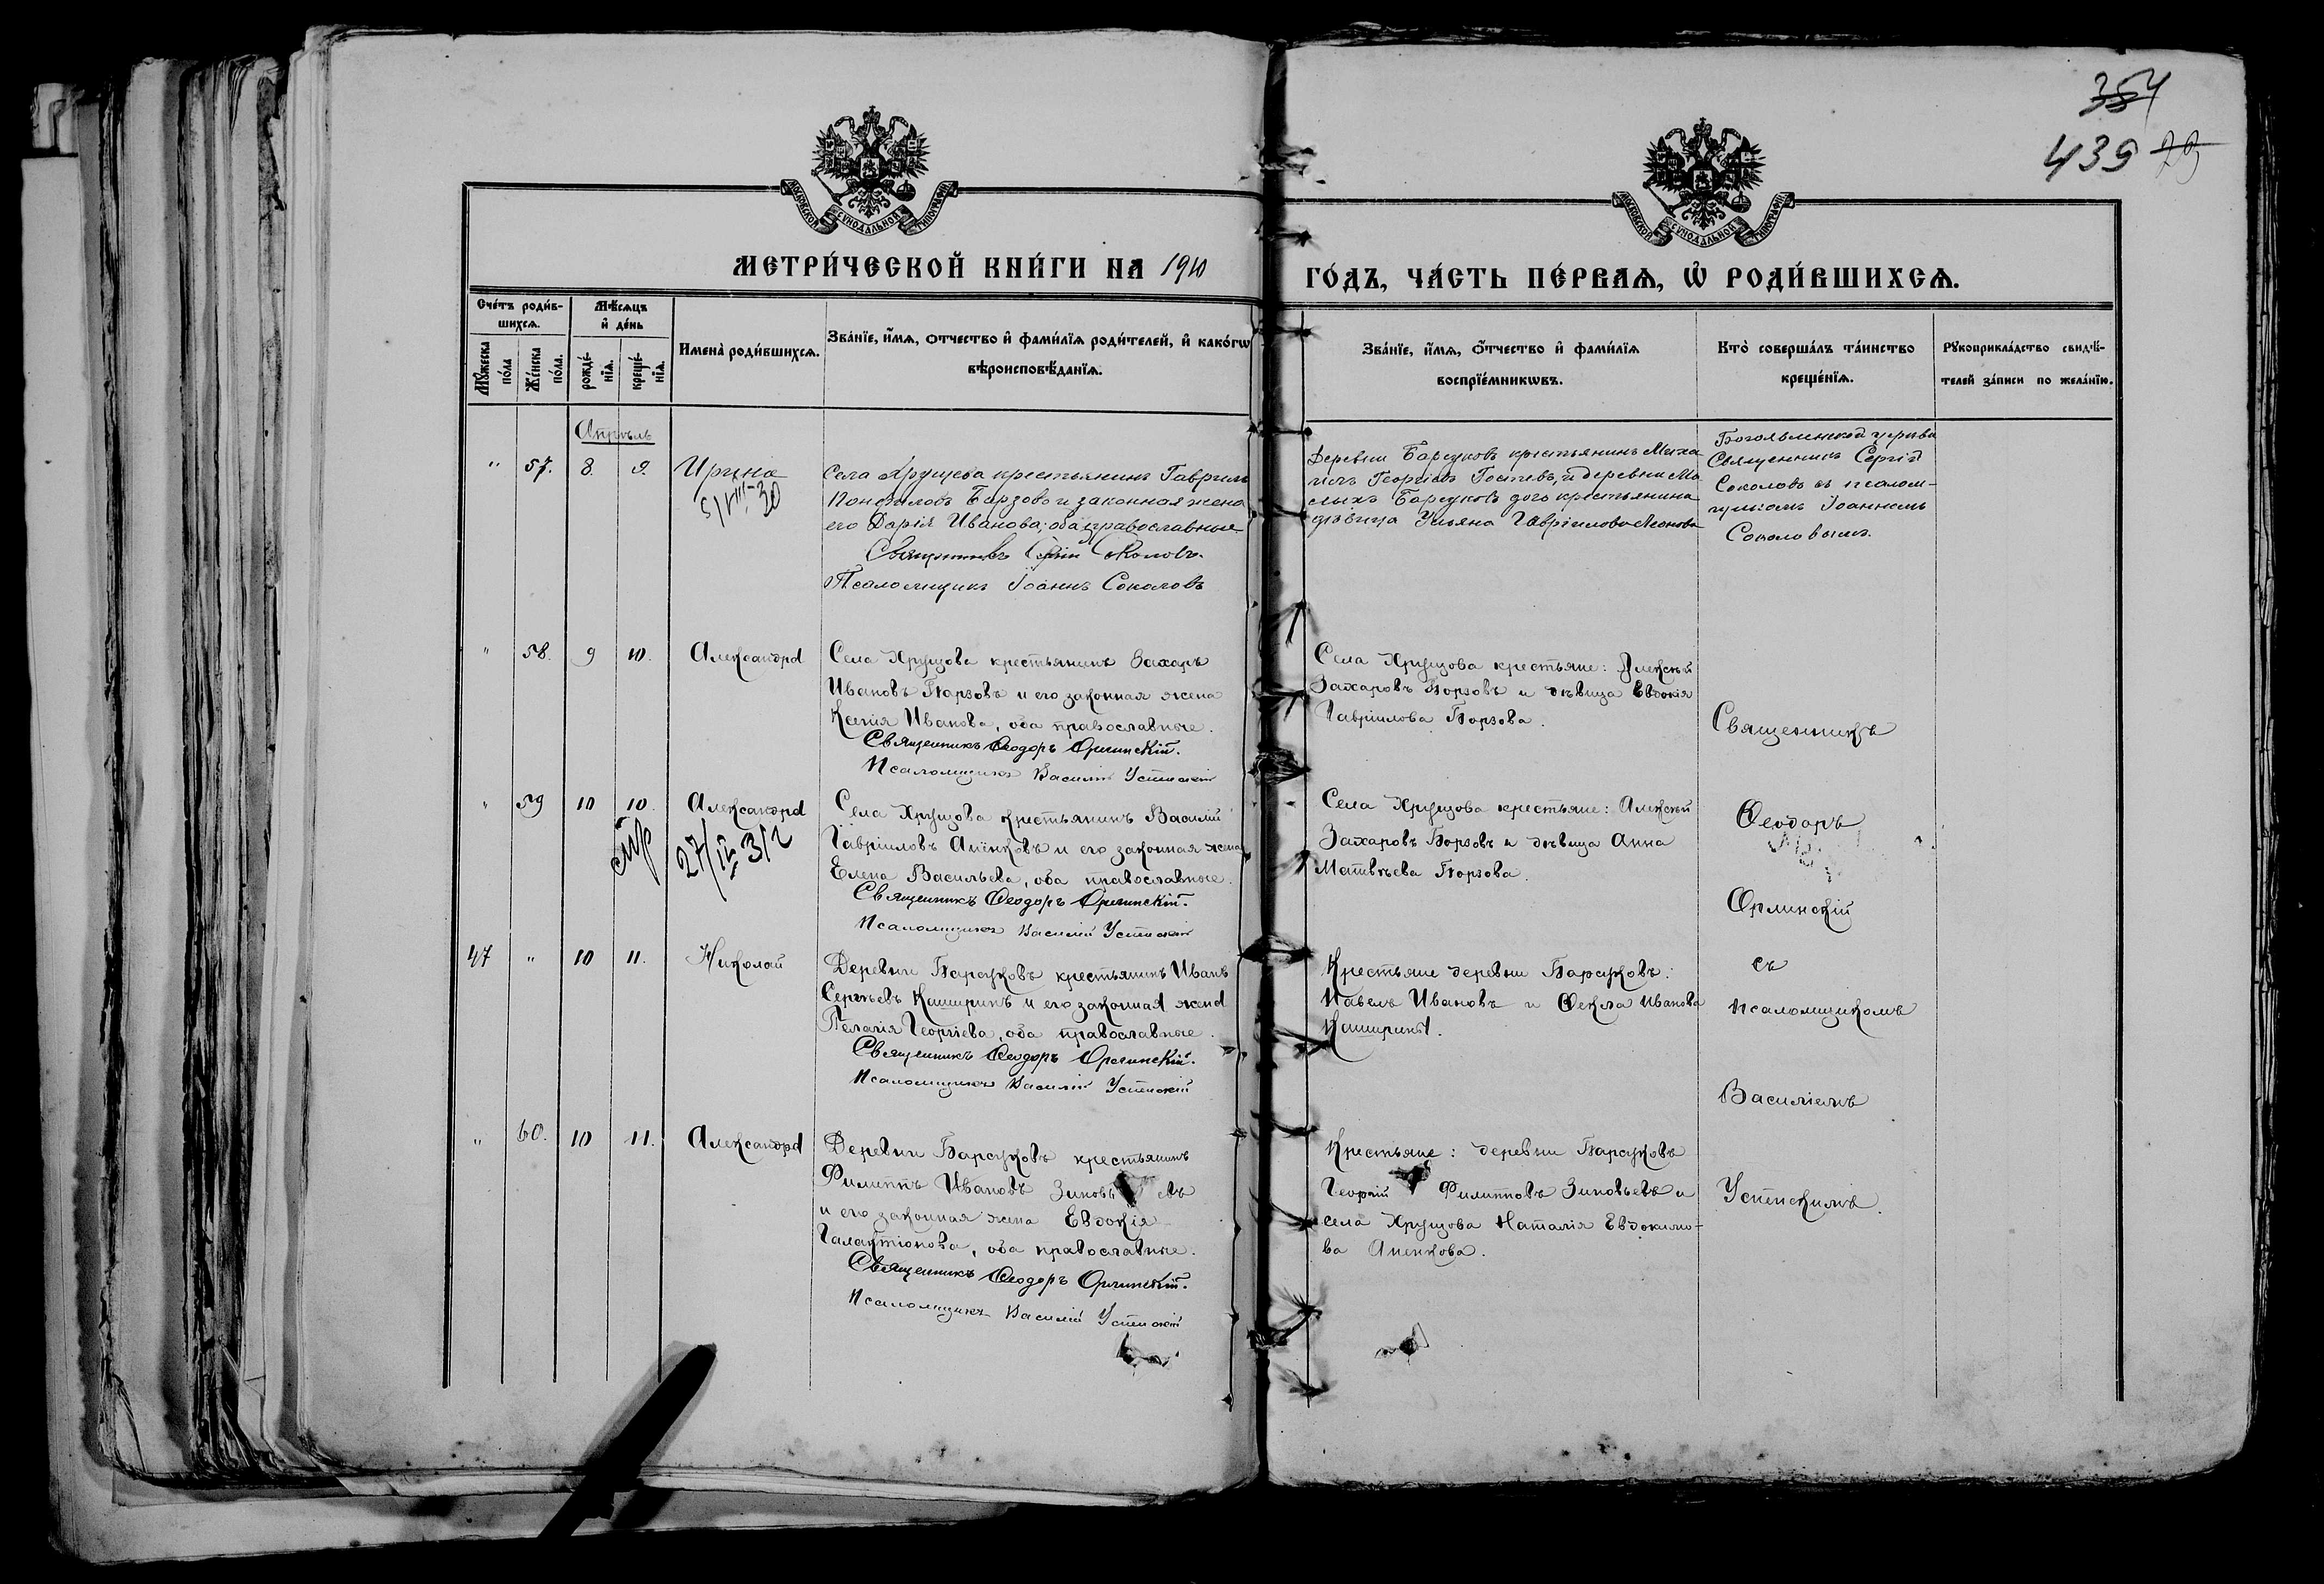 354
439 79
МОСКОВСКОЙ СѴНОДАЛЬНОЙ ТИПОГРАФІИ
МОСКОВСКОЙ СѴНОДАЛЬНОЙ ТИПОГРАФІИ
МЕТРИ́ЧЕСКОЙ КНИ́ГИ НА 1910
ГО́ДЪ, ЧА́СТЬ ПЕ́РВАѦ, Ѡ҆ РОДИ́ВШИХСѦ.
Сче́тъ роди́в-
шихсѧ.
Мꙋ́жеска
по́ла
Же́нска
по́ла.
Мѣ́сѧцъ
и҆ де́нь
рожде́-
нїѧ.
креще́-
нїѧ.
Имена̀ роди́вшихсѧ.
Зва́нїе, и҆́мѧ, ѻ҆́тчество и҆ фами́лїѧ роди́телей, и҆ како́гѡ
вѣроисповѣ́данїѧ.
Зва́нїе, и҆́мѧ, ѻ҆́тчество и҆ фами́лїѧ
воспрїе́мникѡвъ.
Кто̀ соверша́лъ та́инство
креще́нїѧ.
Рꙋкоприкла́дство свидѣ́-
телей за́писи по жела́нїю.
Апрѣль
" 57. 8. 9. Ирина
5/VIII-30
Села Хрущева крестьянинъ Гавріилъ
Памфиловъ Борзовъ и законная жена
его Дарія Иванова; оба православные
Священникъ Сергій Соколовъ.
Псаломщикъ Іоаннъ Соколовъ
Деревни Барсуковъ крестьянинъ Миха
илъ Георгіевъ Гостевъ, и деревни Ма
лыхъ Барсуковъ дочь крестьянина
дѣвица Ульяна Гавріилова Леонова
Богоявленской церкви
Священникъ Сергій
Соколовъ съ псалом-
щикомъ Іоанномъ
Соколовымъ.
" 58. 9 10. Александра
Села Хрущова крестьянинъ Захаръ
Ивановъ Борзовъ и его законная жена
Ксенія Иванова, оба православные.
Священникъ Ѳеодоръ Орлинскій.
Псаломщикъ Василій Успенскій
Села Хрущова крестьяне: Алексѣй
Захаровъ Борзовъ и дѣвица Евдокія
Гавріилова Борзова.
Священникъ
" 59 10 10. Александра
27/IV 31 г
Села Хрущова крестьянинъ Василій
Гавріиловъ Апёнковъ и его законная жена
Елена Васильева, оба православные.
Священникъ Ѳеодоръ Орлинскій.
Псаломщикъ Василій Успенскій
Села Хрущова крестьяне: Алексѣй
Захаровъ Борзовъ и дѣвица Анна
Матвѣева Борзова.
Ѳеодоръ
Орлинскій
47 " 10 11. Николай
Деревни Барсуковъ крестьянинъ Иванъ
Сергѣевъ Каширинъ и его законная жена
Пелагія Георгіева, оба православные.
Священникъ Ѳеодоръ Орлинскій.
Псаломщикъ Василій Успенскій
Крестьяне деревни Барсуковъ:
Павелъ Ивановъ и Ѳекла Иванова
Каширины.
съ
псаломщикомъ
Василіемъ
" 60. 10 11. Александра
Деревни Барсуковъ крестьянинъ
Филиппъ Ивановъ Зиновьевъ
и его законная жена Евдокія
Галактіонова, оба православные.
Священникъ Ѳеодоръ Орлинскій.
Псаломщикъ Василій Успенскій
Крестьяне: деревни Барсуковъ
Георгій Филипповъ Зиновьевъ и
села Хрущова Наталія Евдокимо-
ва Апенкова.
Успенскимъ.